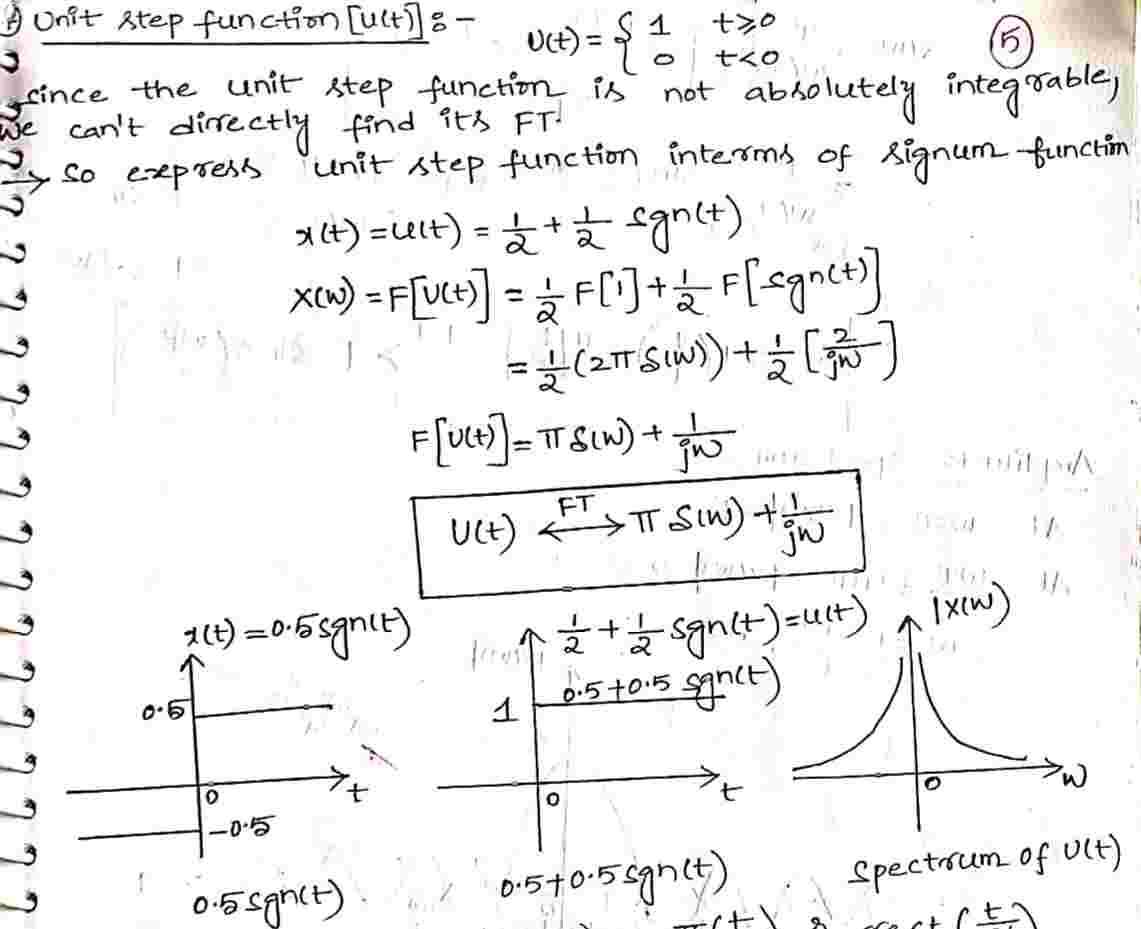 Unit step function [u(t)] :- U(t) = { 1 t≥0
0 t<0
5
since the unit step function is not absolutely integrable,
we can't directly find its FT.
→ so express unit step function interms of signum function
x(t) = u(t) = 1/2 + 1/2 sgn(t)
X(w) = F[U(t)] = 1/2 F[1] + 1/2 F[sgn(t)]
= 1/2 (2π δ(w)) + 1/2 [2/jw]
F[U(t)] = π δ(w) + 1/jw
U(t) ←FT→ π δ(w) + 1/jw
x(t) = 0.5 sgn(t)
0.5
0
t
-0.5
0.5 sgn(t)
1/2 + 1/2 sgn(t) = u(t)
0.5+0.5 sgn(t)
1
0
t
0.5+0.5 sgn(t)
|X(w)
0
w
Spectrum of U(t)